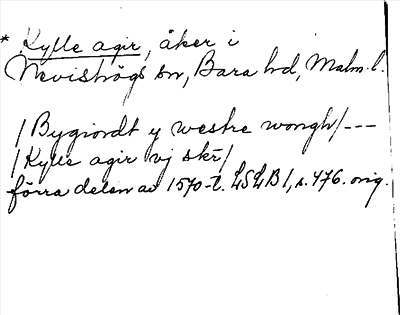 * Kylle agir, åker i
Nevishögs sn, Bara hd, Malm. l.
/Bygiordt y westre wongh/---
/Kylle agir vj skr/
förra delen av 1570-t. LSLB 1, s. 476. orig.